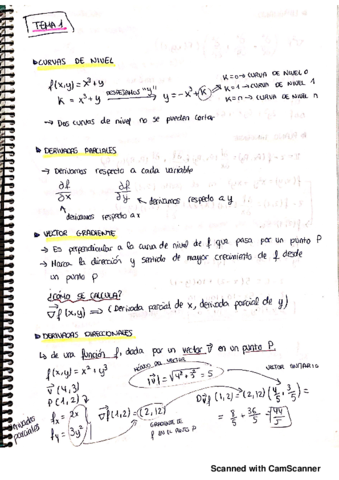 TEMA 1.
CURVAS DE NIVEL
f(x,y) = x³+y
K = x³+y DESPEJAMOS "y" y = -x³+K
K=0 → CURVA DE NIVEL 0
K=1 → CURVA DE NIVEL 1
K=n → CURVA DE NIVEL n
→ Dos curvas de nivel no se pueden cortar
DERIVADAS PARCIALES
→ Derivamos respecto a cada variable
∂f/∂x ∂f/∂y derivamos respecto a y
derivamos respecto a x
VECTOR GRADIENTE
→ Es perpendicular a la curva de nivel de f que pasa por un punto P
→ Marca la dirección y sentido de mayor crecimiento de f desde
un punto P
¿CÓMO SE CALCULA?
∇f(x,y) ⇒ (Derivada parcial de x, derivada parcial de y)
DERIVADAS DIRECCIONALES
↳ de una función f, dada por un vector v⃗ en un punto P.
f(x,y) = x²+y³
MÓDULO DEL VECTOR
|v⃗| = √4²+3² = 5
VECTOR UNITARIO
v⃗(4,3)
P(1,2)
∇f(1,2) = (2,12)
Dv⃗f(1,2) = (2,12)(4/5, 3/5) =
= 8/5 + 36/5 = 44/5
fx = 2x
fy = 3y²
Derivadas parciales
GRADIENTE DE
f EN EL PUNTO P
Scanned with CamScanner